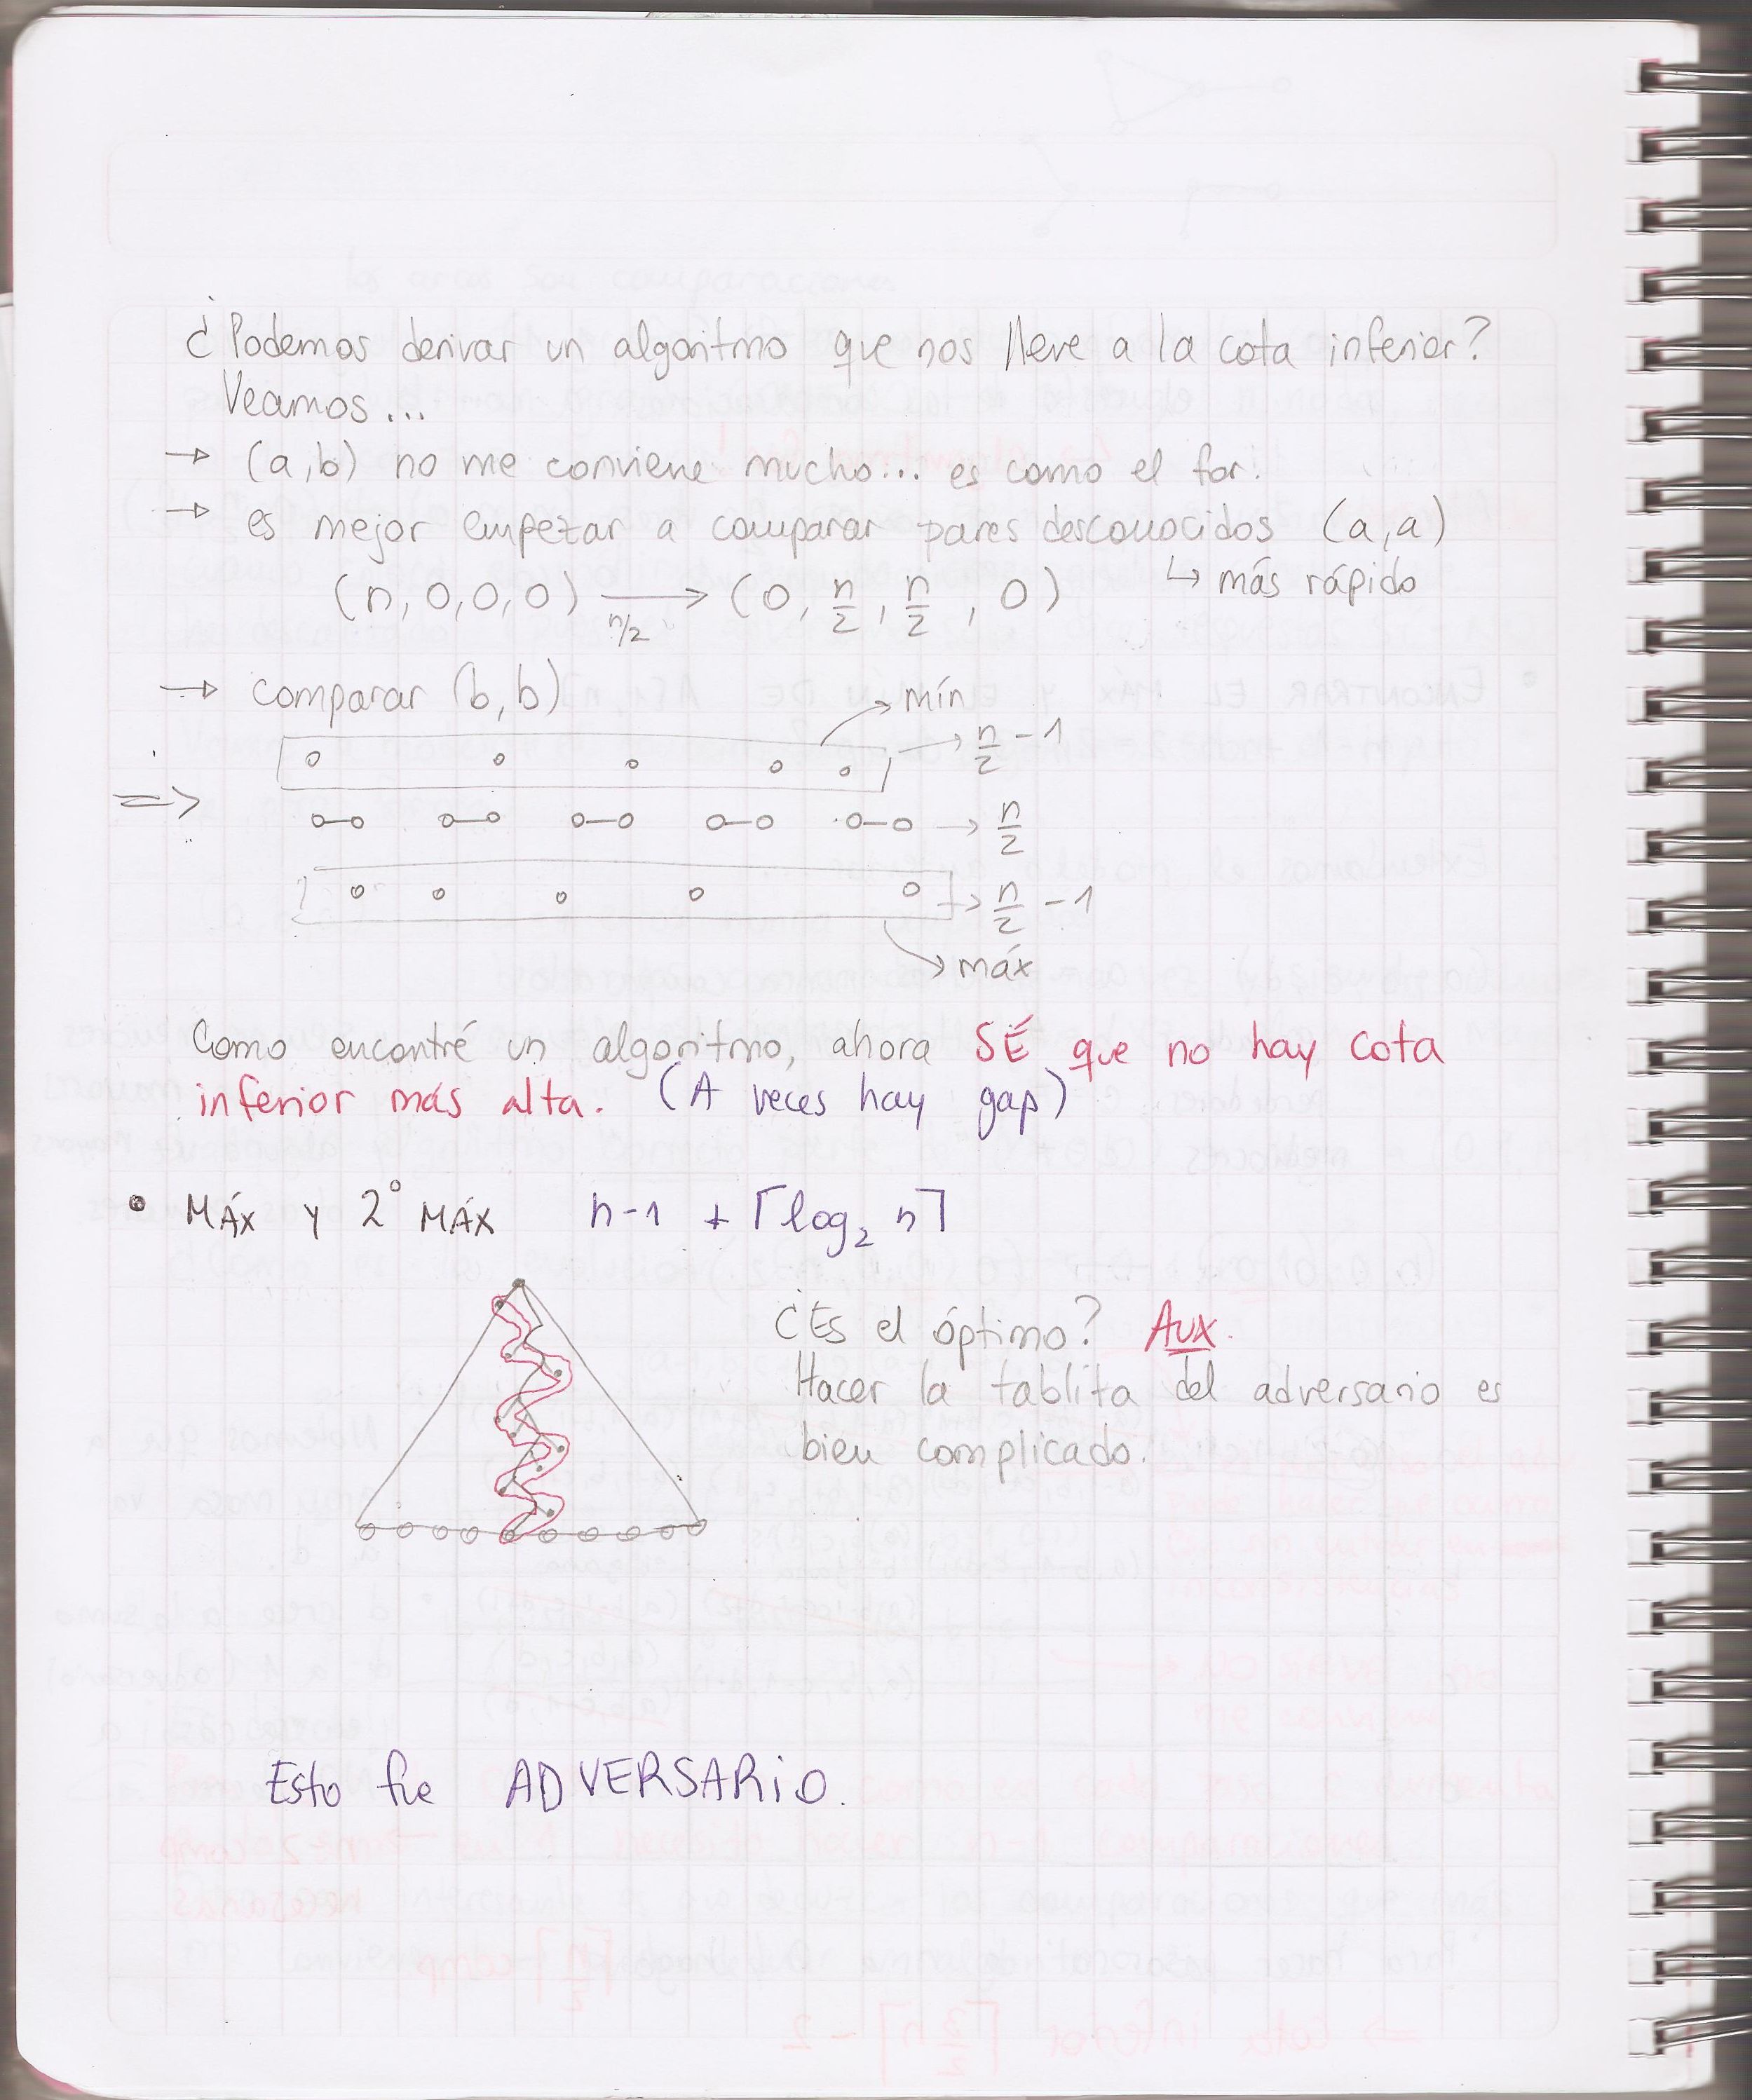 ¿Podemos derivar un algoritmo que nos lleve a la cota inferior?
Veamos...
→ (a,b) no me conviene mucho... es como el for.
→ es mejor empezar a comparar pares desconocidos (a,a)
↳ más rápido
(n,0,0,0) →n/2 (0, n/2, n/2, 0)
→ comparar (b,b)
→ mín
→ n/2 - 1
=>
→ n/2
→ n/2 - 1
→ máx
Como encontré un algoritmo, ahora SÉ que no hay cota
inferior más alta. (A veces hay gap)
• MÁX Y 2° MÁX n-1 + ⌈log₂ n⌉
¿Es el óptimo? AUX.
Hacer la tablita del adversario es
bien complicado.
Esto fue ADVERSARIO.